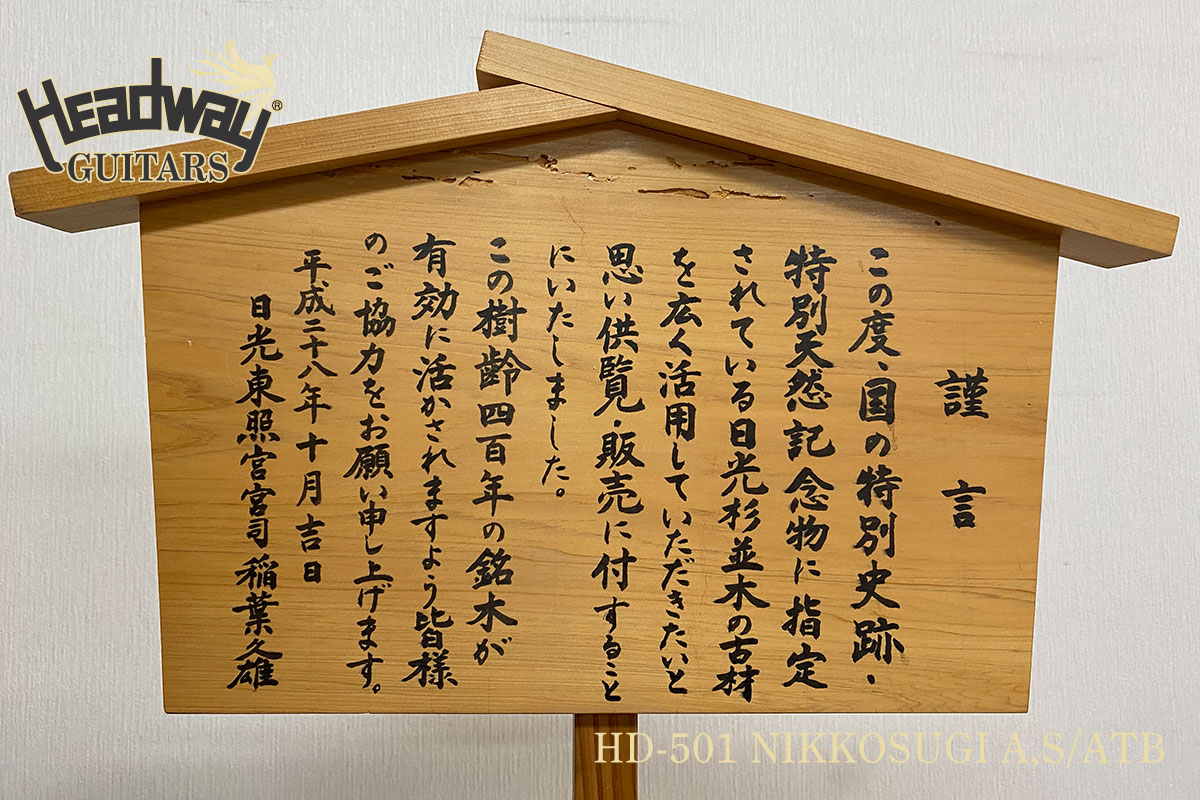 Headway®
GUITARS
謹言
この度、国の特別史跡・
特別天然記念物に指定
されている日光杉並木の古材
を広く活用していただきたいと
思い供覧・販売に付すること
にいたしました。
この樹齢四百年の銘木が
有効に活かされますよう皆様
のご協力をお願い申し上げます。
平成二十八年十月吉日
日光東照宮宮司 稲葉久雄
HD-501 NIKKOSUGI A,S/ATB